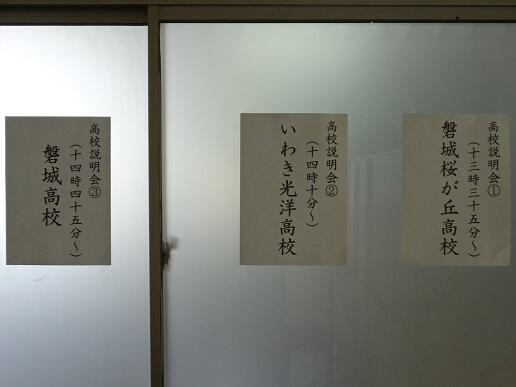 高校説明会①
（十三時三十五分～）
磐城桜が丘高校
高校説明会②
（十四時十分～）
いわき光洋高校
高校説明会③
（十四時四十五分～）
磐城高校